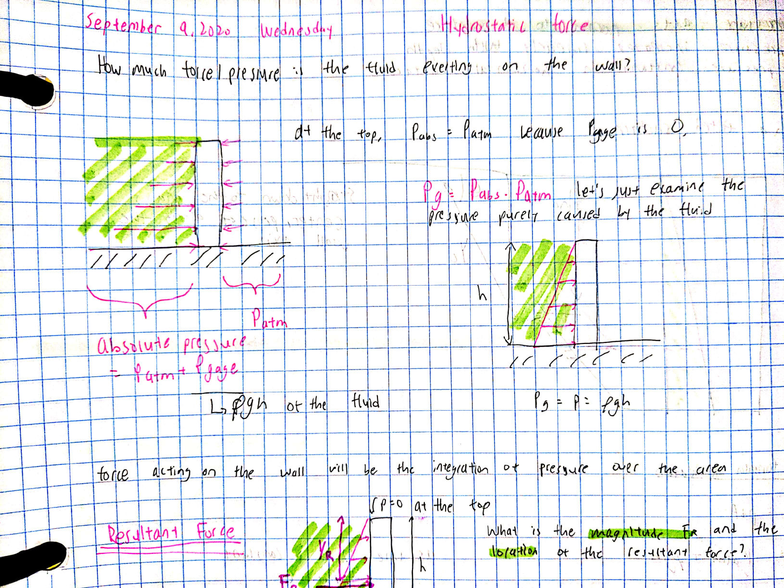 September 9, 2020 Wednesday Hydrostatic force
How much force/pressure is the fluid exerting on the wall?
at the top, Pabs = Patm because Pgage is 0.
Pg = Pabs - Patm let's just examine the
pressure purely caused by the fluid
h
Patm
absolute pressure
= Patm + Pgage
↳ ρgh of the fluid
Pg = P = ρgh
force acting on the wall will be the integration of pressure over the area
P=0 at the top
Resultant Force
What is the magnitude FR and the
location of the resultant force?
YR
h